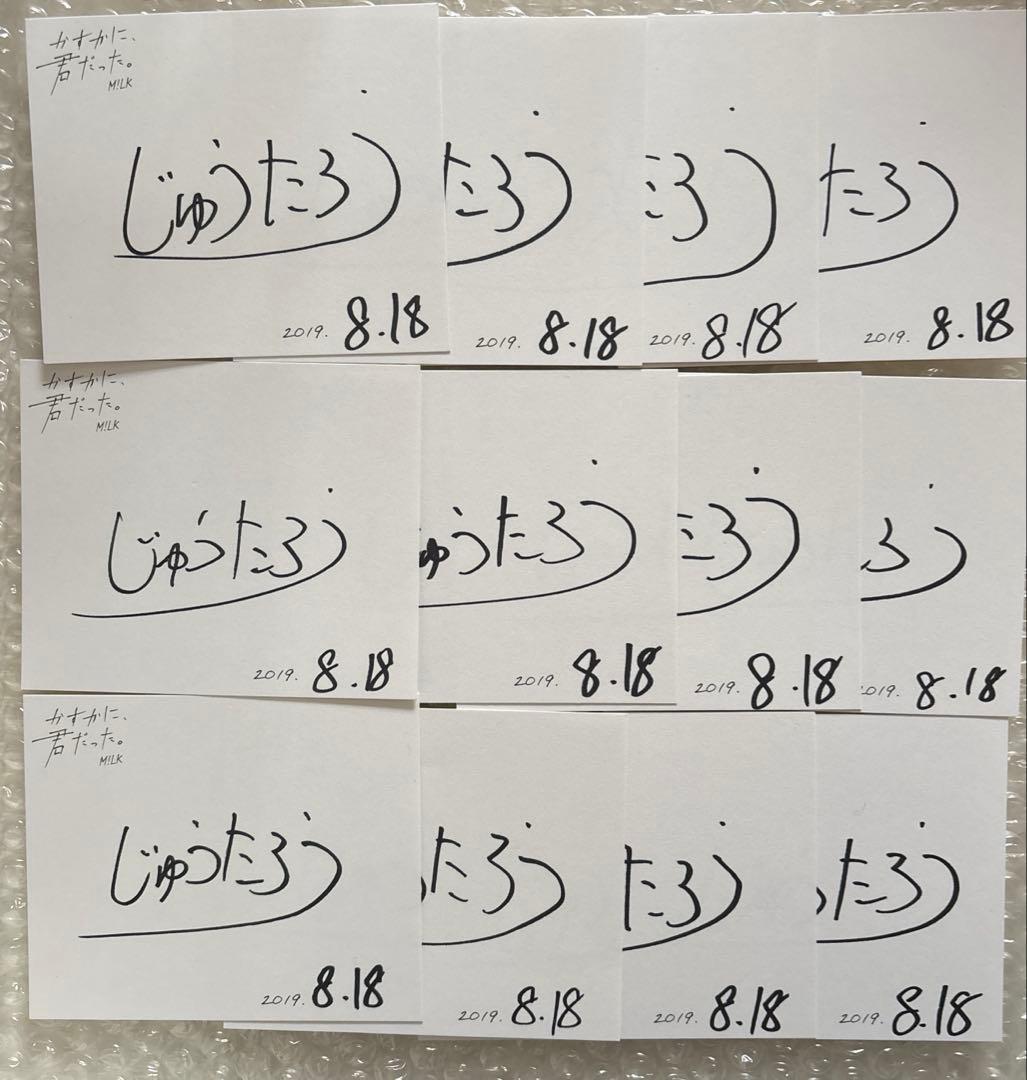 かすかに、
君だった。
M!LK
じゅうたろう
2019. 8.18
たろう
2019. 8.18
ろう
2019. 8.18
たろう
2019. 8.18
かすかに、
君だった。
M!LK
じゅうたろう
2019. 8.18
ゅうたろう
2019. 8.18
ろう
2019. 8.18
ろう
019. 8.18
かすかに、
君だった。
M!LK
じゅうたろう
2019. 8.18
たろう
2019. 8.18
たろう
2019. 8.18
たろう
2019. 8.18